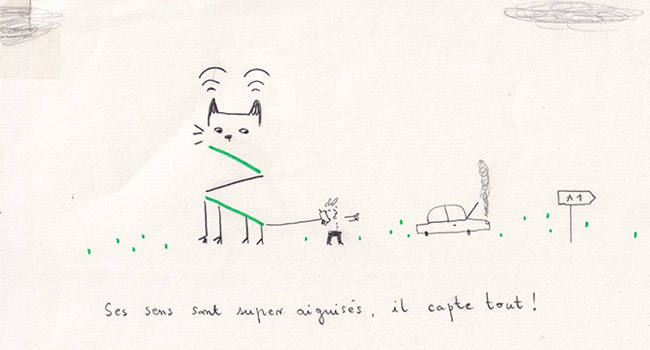 A1
Ses sens sont super aiguisés, il capte tout !